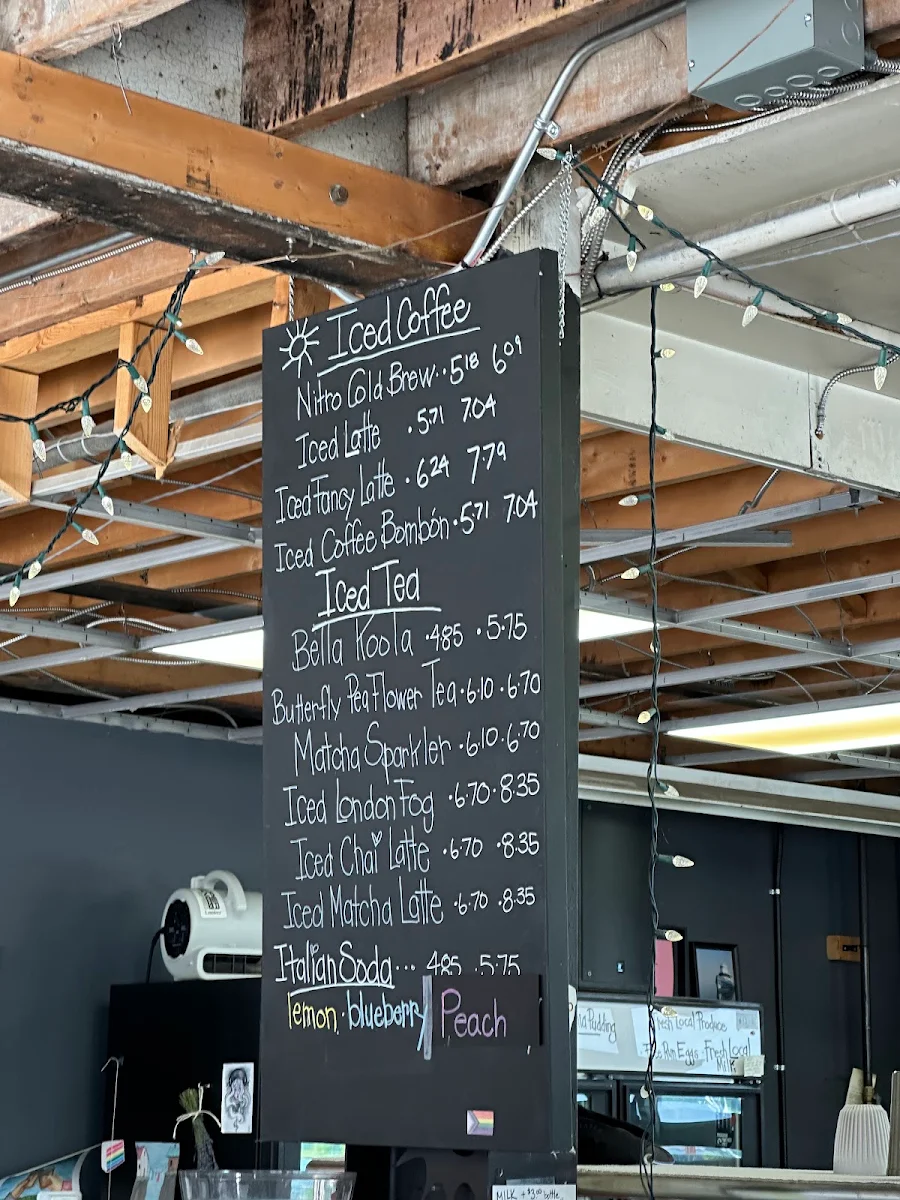 Iced Coffee
Nitro Cold Brew..518 609
Iced Latte .571 704
Iced Fancy Latte .624 779
Iced Coffee Bombón.571 704
Iced Tea
Bella Koola .485 .575
Butterfly Pea Flower Tea.6.10 .6.70
Matcha Sparkler .6.10.6.70
Iced London Fog .6.70.8.35
Iced Chai Latte .6.70 .8.35
Iced Matcha Latte .6.70 .8.35
Italian Soda... 485 .575
lemon.blueberry Peach
Pudding
Fresh Local Produce
Run Eggs - Fresh Local
Milk
MILK + $3.00 bottle